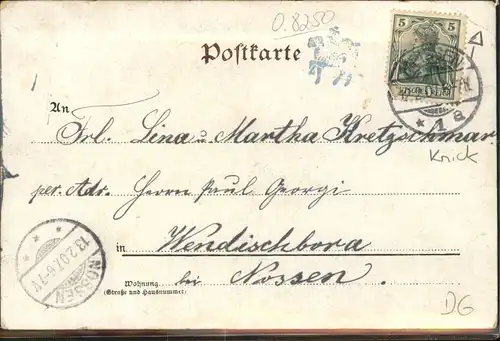 0.8250
Postkarte
5 5
Knick
An
Frl. Lina u. Martha Kretzschmar
per. Adr. Herrn Paul Georgi
in Wendischbora
bei Nossen.
Wohnung
(Straße und Hausnummer)
NOSSEN
13.2.07.6-7V
* 1 a
DG